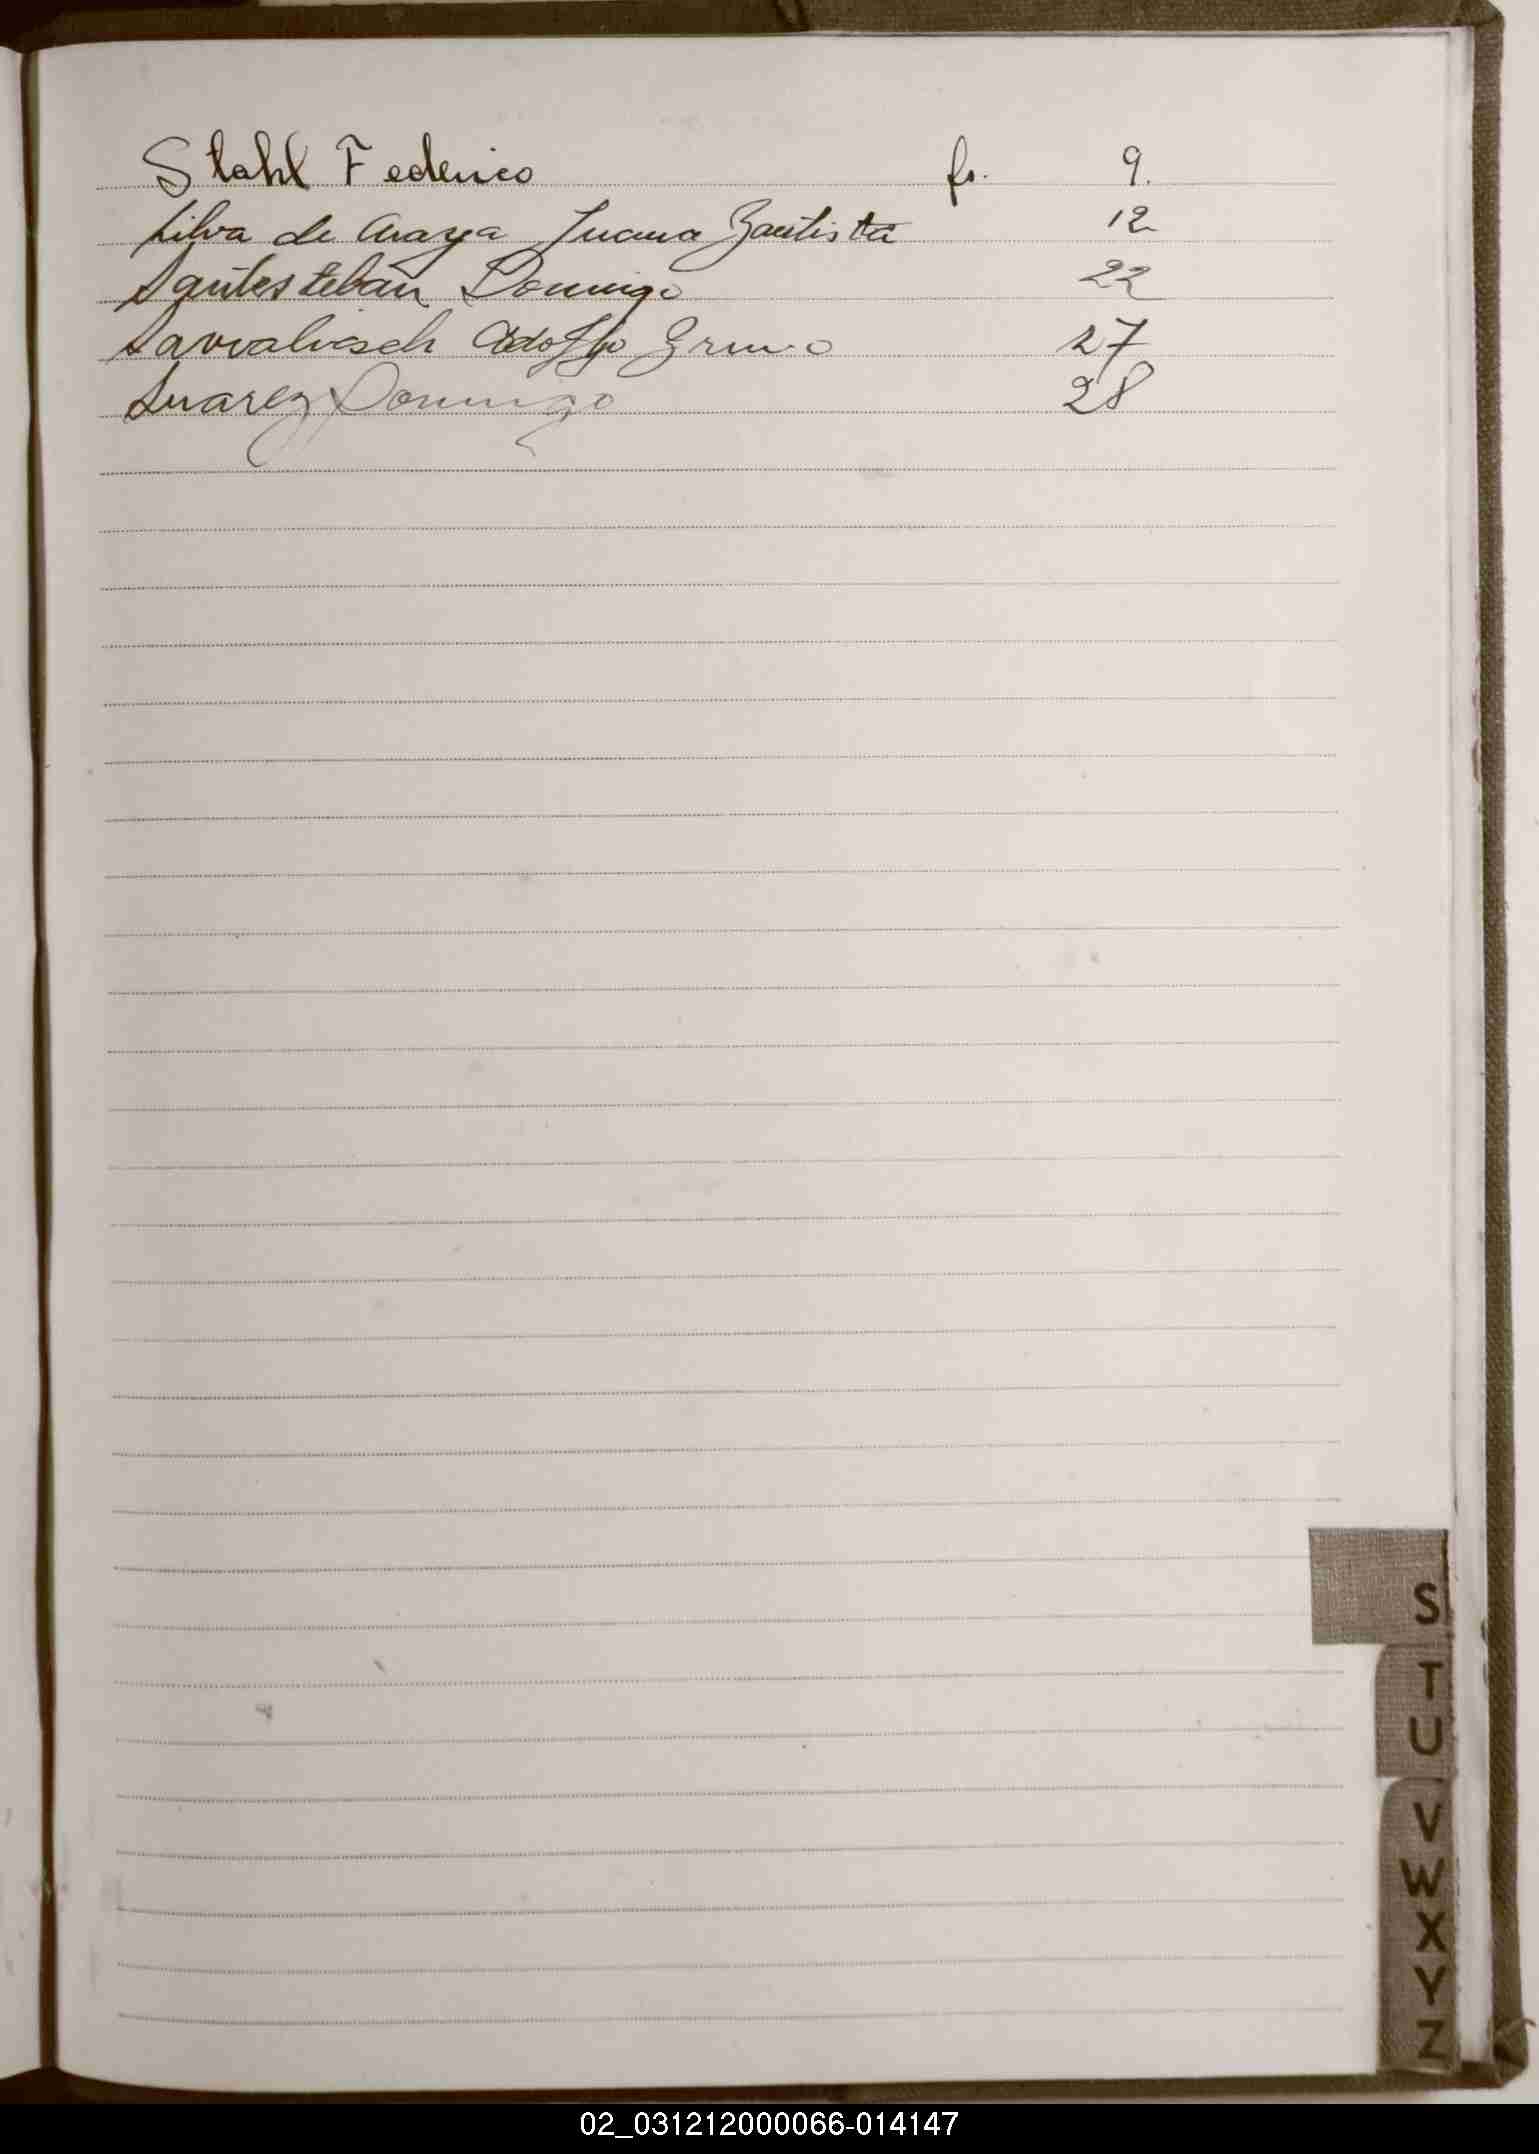 Stahl Federico fs. 9.
Silva de Araya Juana Bautista 12
Santesteban Domingo 22
Savralisch Adolfo Bruno 27
Suarez Domingo 28
S
T
U
V
W
X
Y
Z
02_031212000066-014147